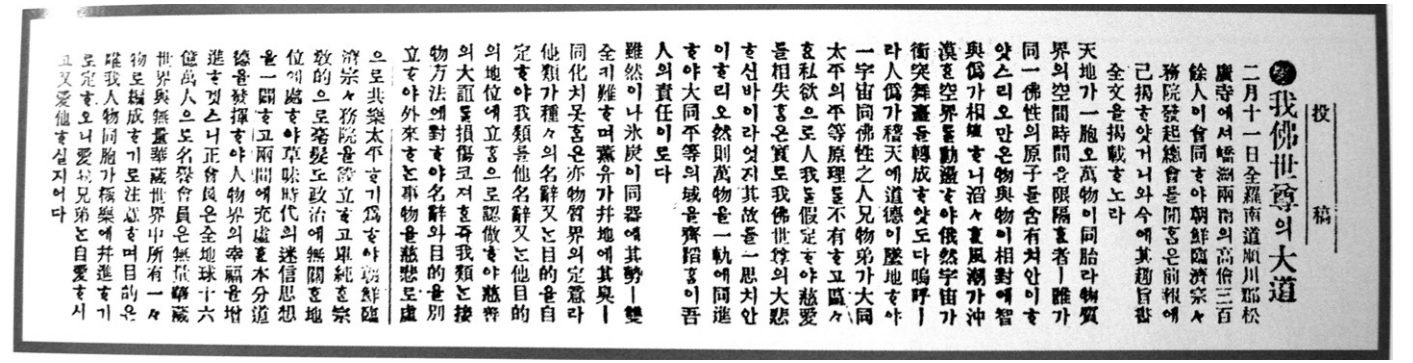 投稿
●我佛世尊의大道
二月十一日全羅南道順川郡松
廣寺에셔嶠湖兩南의高僧三百
餘人이會同ᄒᆞ야朝鮮臨濟宗々
務院發起總會를開홈은前報에
己揭ᄒᆞ얏거니와今에其趣旨書
全文을揭載ᄒᆞ노라
天地가一胞오萬物이同胎라物質
界의空間時間을限隔ᄒᆞᆫ者ㅣ雖가
同一佛性의原子를含有치안이ᄒᆞ
얏스리오만은物與物이相對에智
與僞가相ᄒᆞ니滔々ᄒᆞᆫ風潮가冲
漠ᄒᆞᆫ空界를動盪ᄒᆞ야俄然宇宙가
衝突舞臺를轉成ᄒᆞ얏도다嗚呼ㅣ
라人僞가稽天에道德이墜地ᄒᆞ야
一宇宙同佛性之人兄物弟가大同
太平의平等原理를不有ᄒᆞ고區々
ᄒᆞᆫ私欲으로人我를假定ᄒᆞ야慈愛
를相失홈은實로我佛世尊의大悲
ᄒᆞ신바이라엇지其故를一思치안
이ᄒᆞ리오然則萬物을一軌에同進
ᄒᆞ야大同平等의域을齊蹈홈이吾
人의責任이로다
雖然이나氷炭이同器에其勢ㅣ雙
全키難ᄒᆞ며薰蕕가幷地에其臭ㅣ
同化치못홈은亦物質界의定意라
他類가種々의名辭又는目的을自
定ᄒᆞ야我類를他名辭又는他目的
의地位에立홈으로認做ᄒᆞ야慈善
의大誼를損傷코져ᄒᆞᆫ즉我類는接
物方法에對ᄒᆞ야名辭와目的을別
立ᄒᆞ야外來ᄒᆞ는事物을慈悲로虛
으로共樂太平ᄒᆞ기爲ᄒᆞ야朝鮮臨
濟宗々務院을設立ᄒᆞ고單純ᄒᆞᆫ宗
敎的으로毫髮도政治에無關ᄒᆞᆫ地
位에處ᄒᆞ야草昧時代의迷信思想
을一闢ᄒᆞ고兩間에充虛ᄒᆞᆫ本分道
德을發揮ᄒᆞ야人物界의幸福을增
進ᄒᆞ겟스니正會員은全地球十六
億萬人으로名譽會員은無量華藏
世界與無量華藏世界中所有一々
物로編成ᄒᆞ기로注意ᄒᆞ며目的은
雖我人物同胞가極樂에幷進ᄒᆞ기
로定ᄒᆞ오니愛我兄弟는自愛ᄒᆞ시
고又愛他ᄒᆞ실지어다